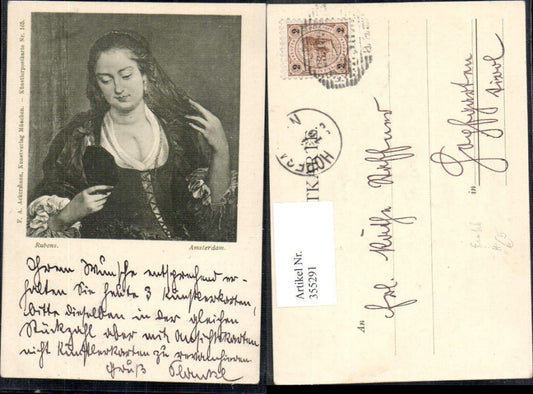 F. A. Ackermann, Kunstverlag München. – Künstlerpostkarte Nr. 165.
Rubens. Amsterdam.
Ihrem Wunsche entsprechend er-
halten Sie heute 3 Künstlerkarten,
bitte dieselben in der gleichen
Stückzahl aber mit Ansichtskarten
nicht Künstlerkarten zu revanchieren.
Gruß
2 2
Artikel Nr.
355291
An
Frl. Käthe
in
Tirol